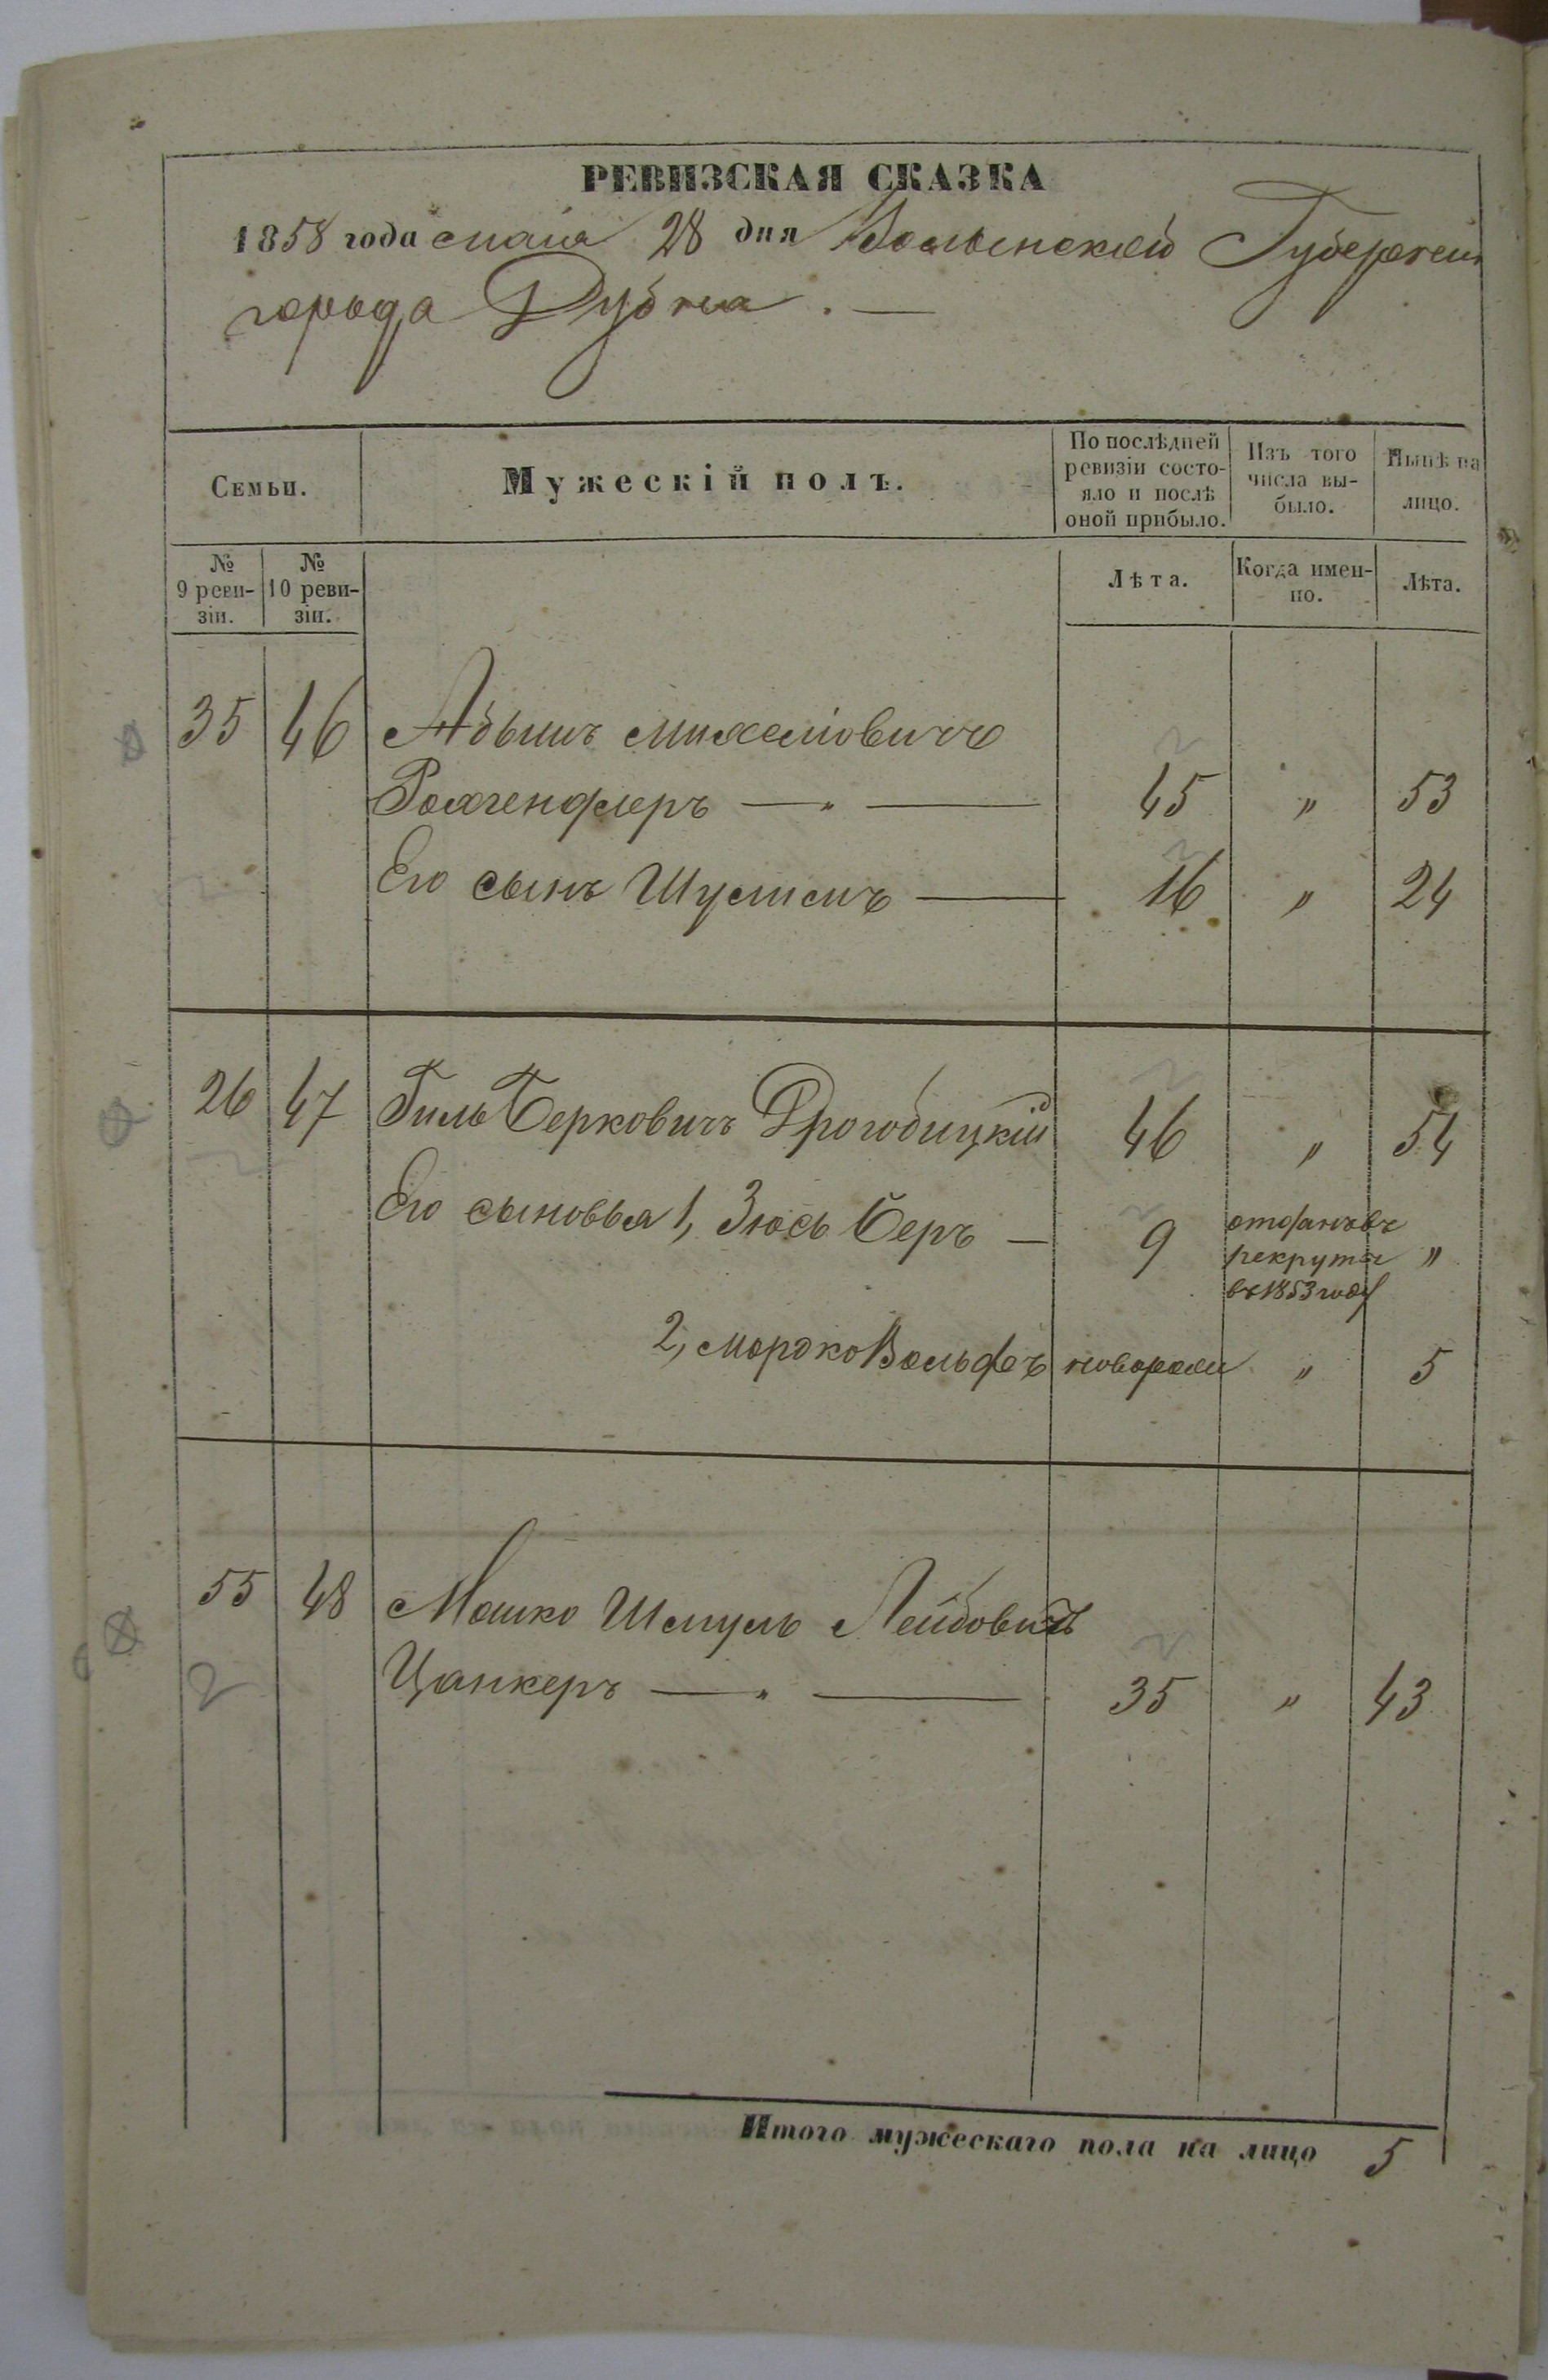 РЕВИЗСКАЯ СКАЗКА
1858 года маія 28 дня Волынской Губерніи
города Дубна. —
Семьи.
Мужескій полъ.
По послѣдней ревизіи состояло и послѣ оной прибыло.
Изъ того числа выбыло.
Нынѣ на лицо.
№ 9 ревизіи.
№ 10 ревизіи.
Лѣта.
Когда именно.
Лѣта.
35 46
45 " 53
Его сынъ — 16 " 24
26 47 Гиль Берковичъ Дрогобицкій 46 " 54
Его сыновья 1, Зюсь Беръ — 9 отданъ въ рекруты въ 1853 году "
2, Мордко Вольфъ новорож " 5
55 48 Мошко Шмуль Лейбовичъ
Цанкеръ — " — 35 " 43
2
Итого мужескаго пола на лицо 5